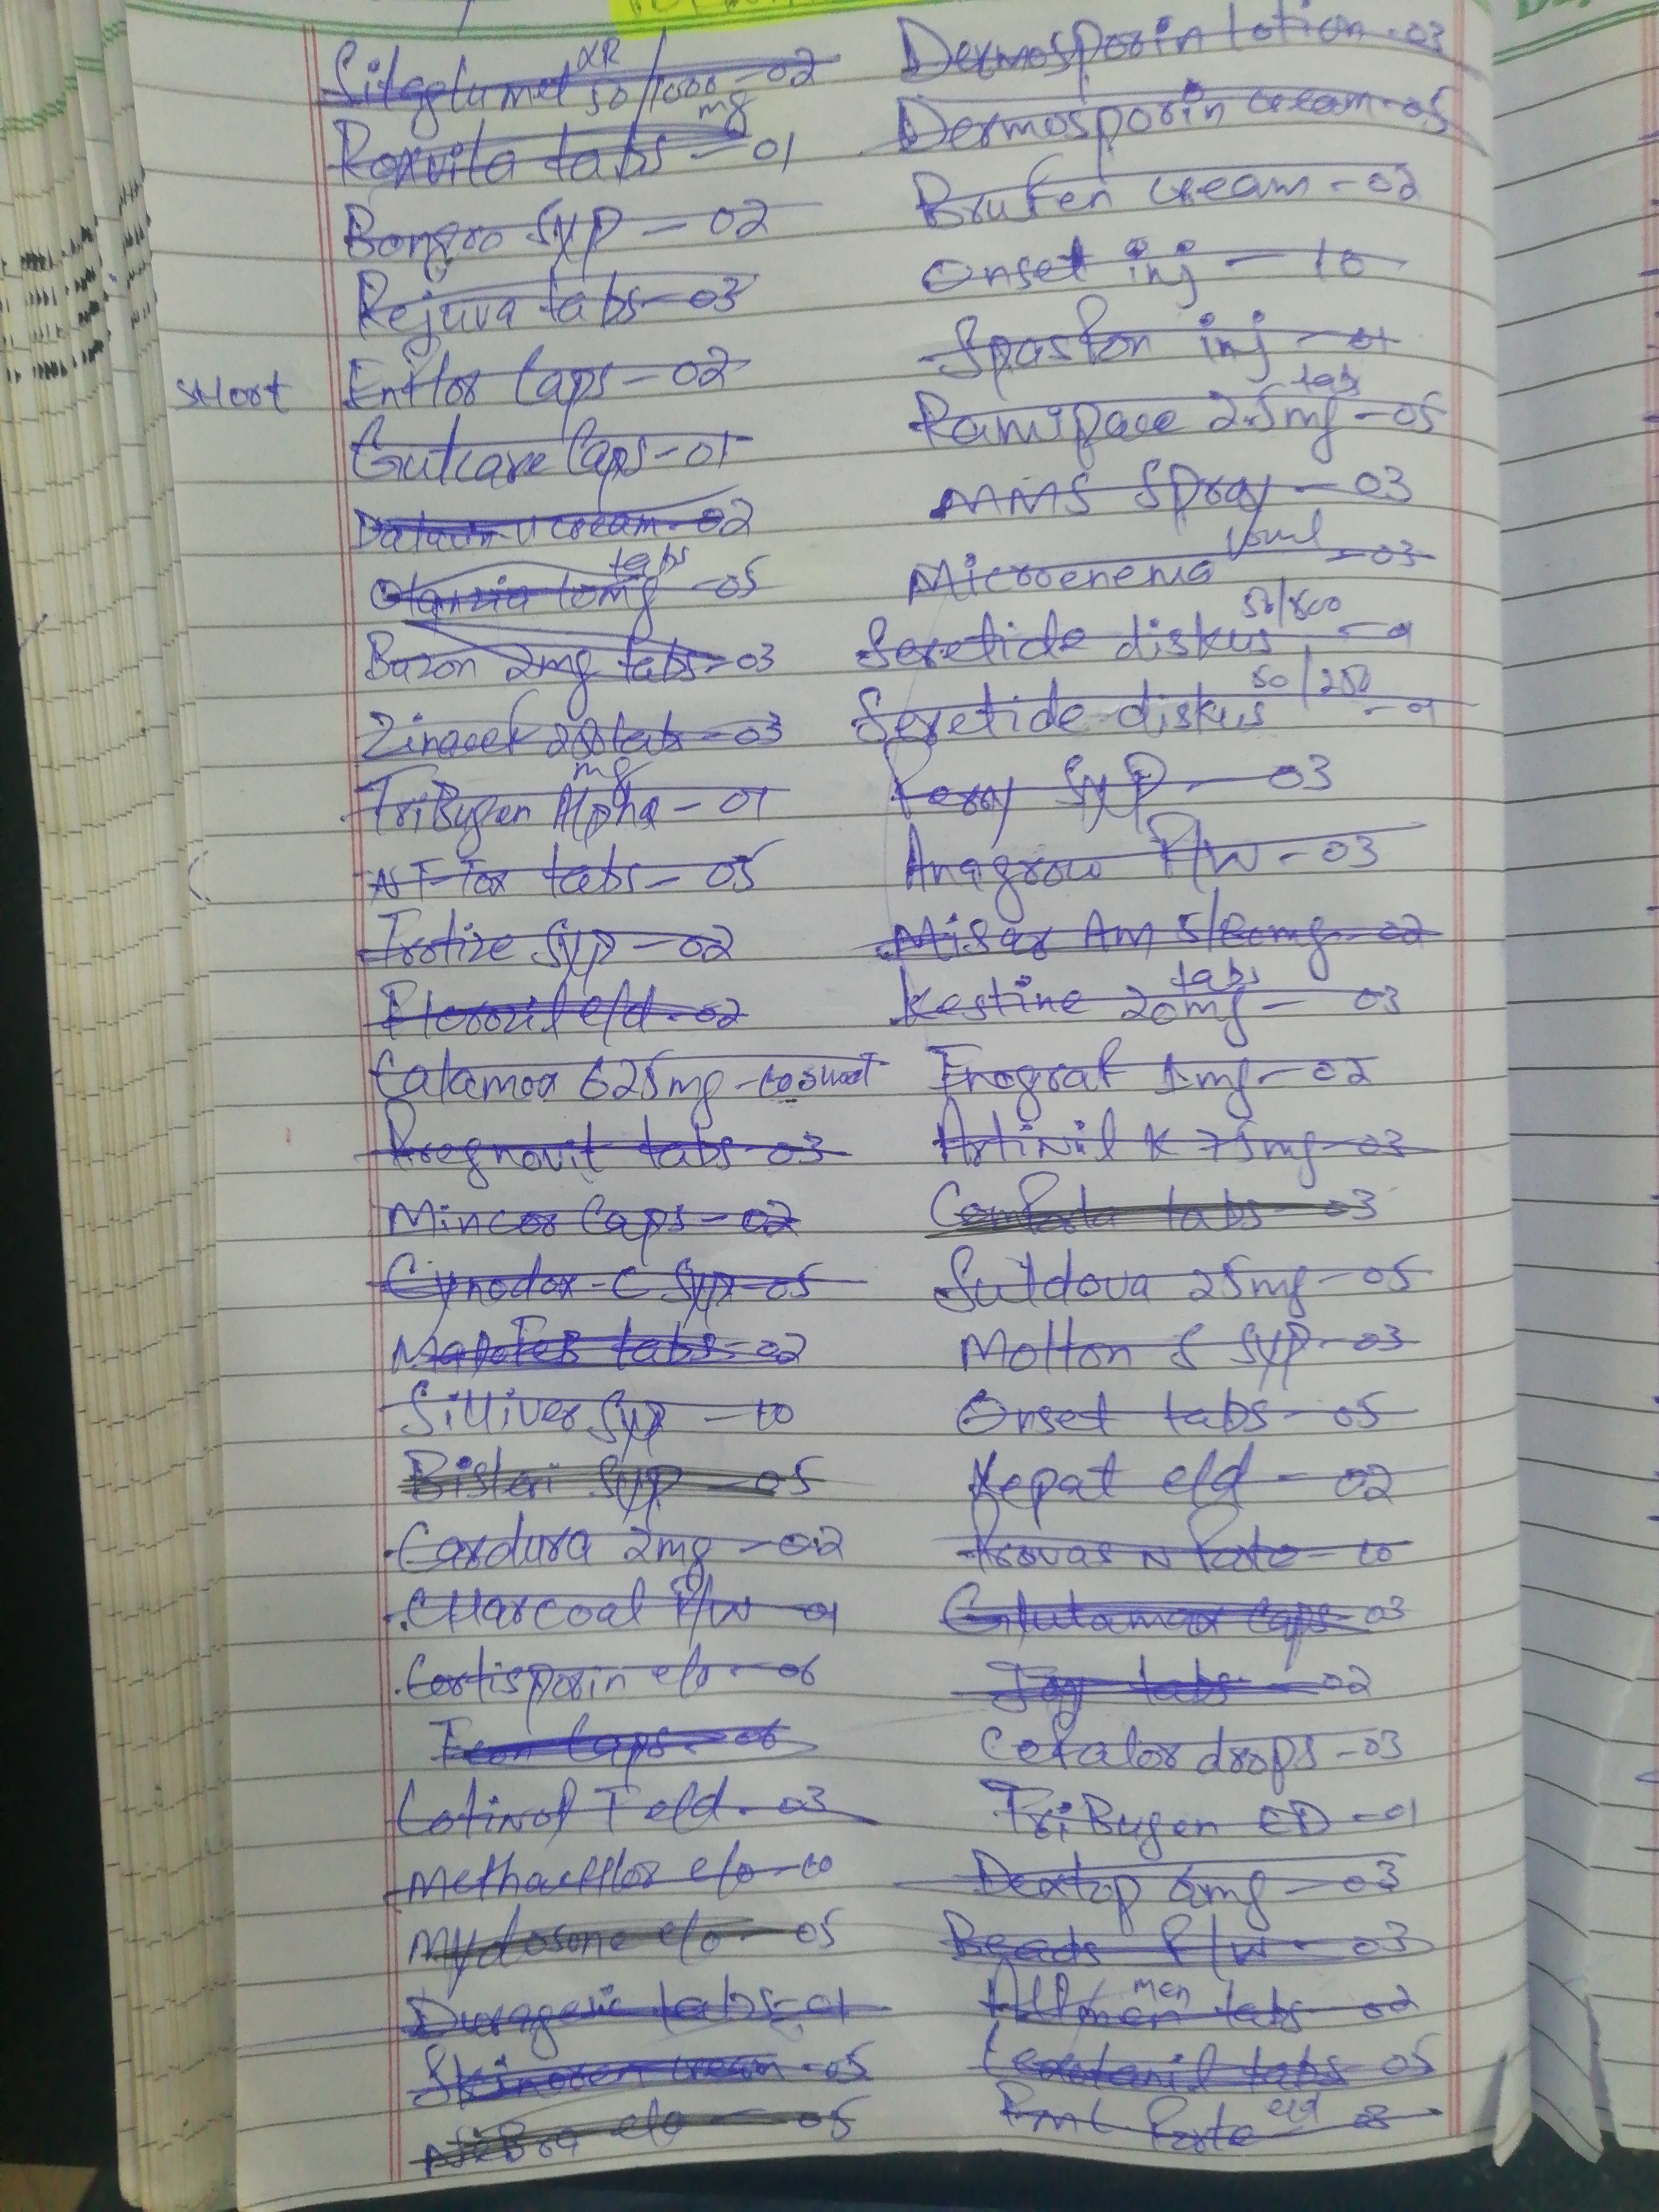 Sitaglumet XR 50/1000 mg - 02
Roxvita tabs - 01
Bongro Syp - 02
Rejuva tabs - 03
short Enflor Caps - 02
Gutcare Caps - 01
cream - 02
Olanzia 10mg tabs - 05
Bazon 2mg tabs - 03
Zinacef 250 mg tabs - 03
TriBugen Alpha - 01
AST-Tor tabs - 05
Frotize Syp - 02
e/d - 02
Calamox 625mg - 10 short
Pregnovit tabs - 03
Mincor Caps - 02
Cynodox-C Syp - 05
tabs - 02
Silliver Syp - 10
Bisleri Syp - 05
Cardura 2mg - 02
Charcoal P/W - 01
Cortisporin e/o - 06
Caps - 06
Lotinof T e/d - 03
Methachlor e/o - 10
Mydosone e/o - 05
tabs - 01
Skinoren cream - 05
e/o - 05
Dermosporin lotion - 03
Dermosporin cream - 05
Brufen cream - 02
Onset inj - 10
Spasfon inj - 01
Ramipace 2.5mg tabs - 05
MMS Spray - 03
Microenema 10ml - 03
Seretide diskus 50/500 - 01
Seretide diskus 50/250 - 01
Syp - 03
Anagrow P/W - 03
Misar Am 5/80mg - 02
Kestine 20mg tabs - 03
1mg - 02
Artinil K 75mg - 03
tabs - 03
Suldova 25mg - 05
Molton S Syp - 03
Onset tabs - 05
Kepat e/d - 02
Provas N Forte - 10
Glutamax Caps - 03
Joy tabs - 02
Cefalor drops - 03
TriBugen ED - 01
Dextop 6mg - 03
Beads P/W - 03
men tabs - 02
Lexotanil tabs - 05
Forte e/d